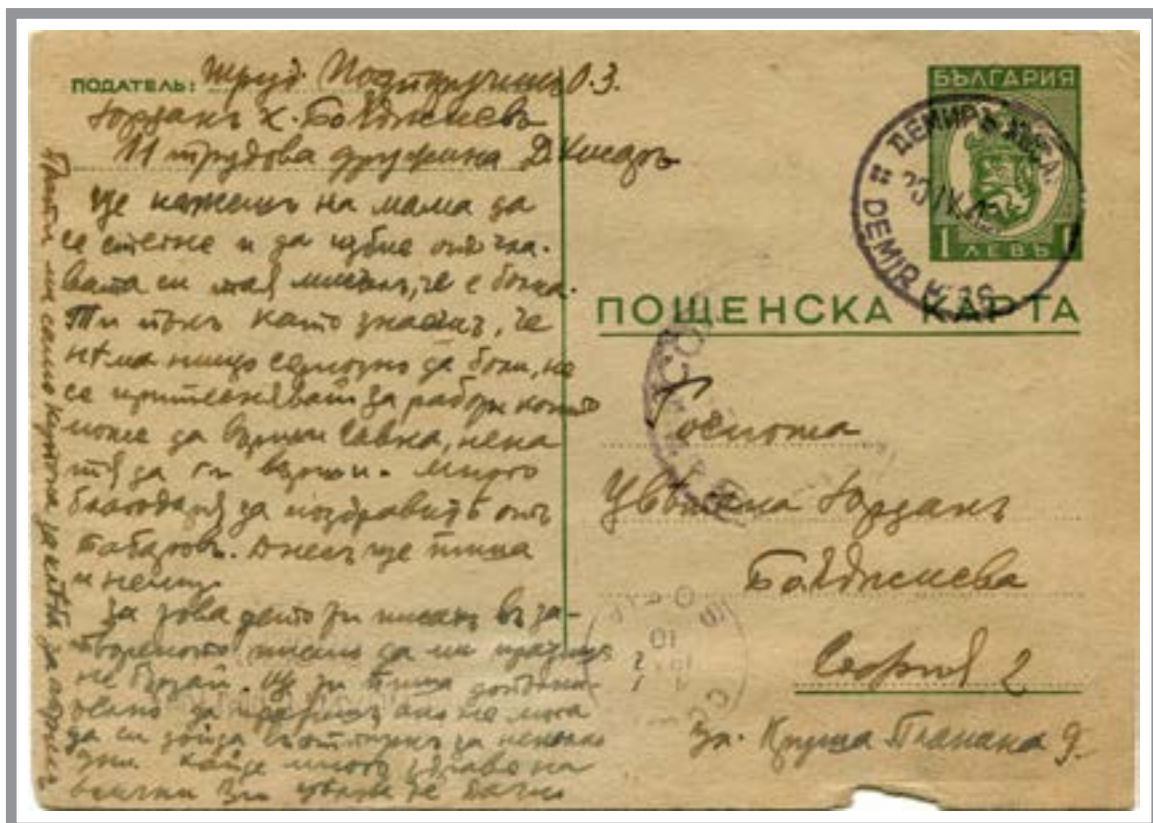 ПОДАТЕЛЬ: Труд. Подпоручикъ О.З.
Йорданъ Х. Бояджиевъ
11 трудова дружина Д. Хисаръ
Ще кажешъ на мама да
се стегне и да избие отъ гла-
вата си тая мисъль, че е болна.
Ти пъкъ като знаешъ, че
нѣма нищо сериозно да боли, не
се притеснявай за работи които
може да върши Савка, нека
тя да ги върши. Много
благодаря за поздравитѣ отъ
Табаковъ. Днесъ ще пиша
и нему.
За това дето ти писахъ въ за-
твореното писмо да ми пратишъ
не бързай. Ще ти пиша
да ако не мога
да си дойда въ отпускъ за няколко
дни. Кажи много здраве на
всички Ви
Прати ми само
БЪЛГАРИЯ
1 ЛЕВЪ
ДЕМИРЪ ХИСАР
DEMIR HISS
ПОЩЕНСКА КАРТА
Госпожа
Цвѣтана Йорданъ
Бояджиева
София 2
Ул. Круша Планина 9.